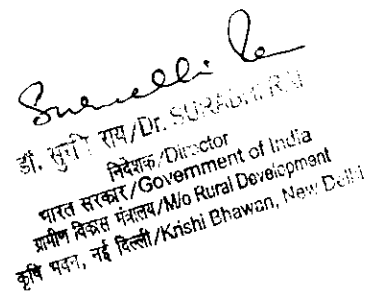 डॉ. सुरभि राय/Dr. SURABHI RAI
निदेशक/Director
भारत सरकार/Government of India
ग्रामीण विकास मंत्रालय/M/o Rural Development
कृषि भवन, नई दिल्ली/Krishi Bhawan, New Delhi